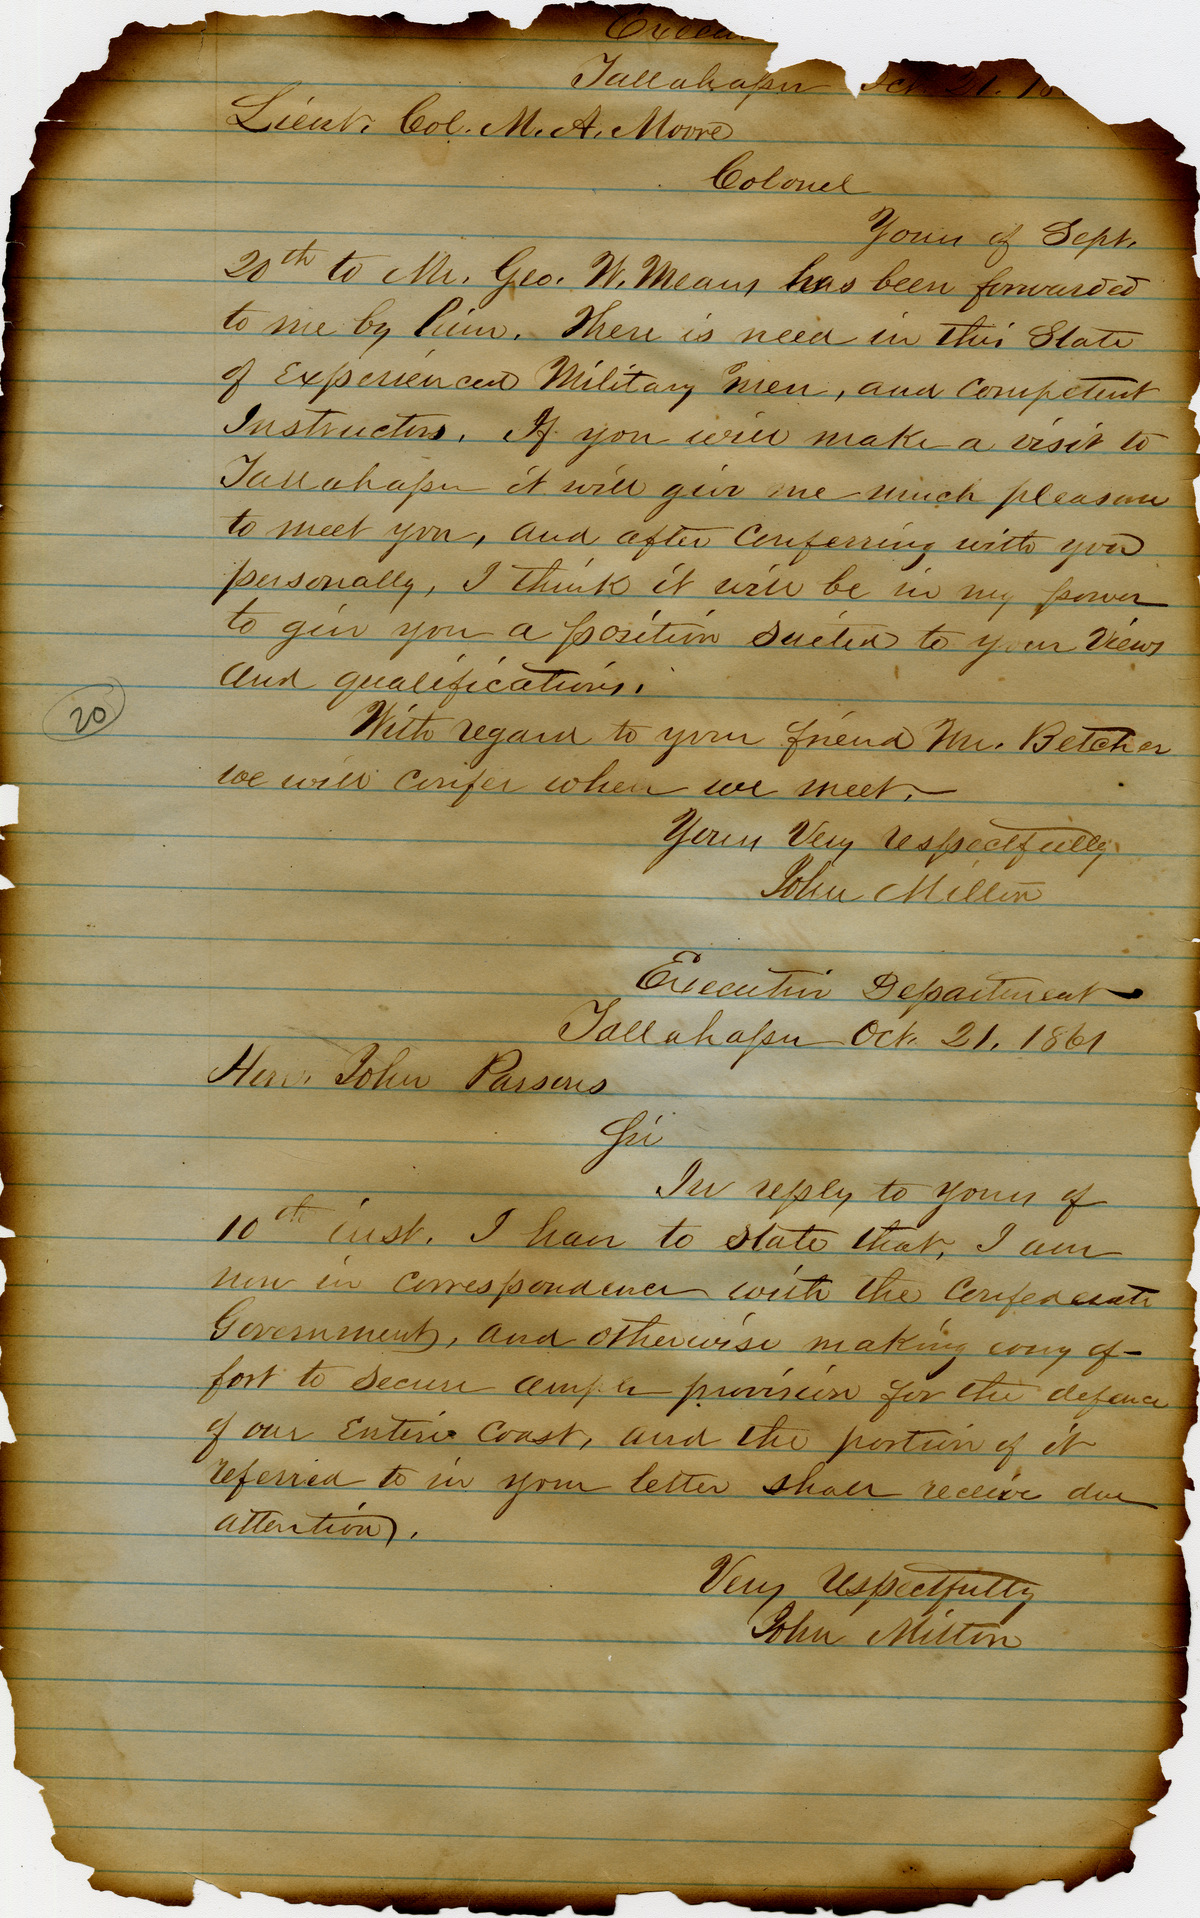 Execu
Tallahassee Oct. 21. 18
Lieut. Col. M. A. Moore
Colonel
Yours of Sept.
20th to Mr. Geo. W. Means has been forwarded
to me by him. There is need in this State
of Experienced Military men, and competent
Instructors. If you will make a visit to
Tallahassee it will give me much pleasure
to meet you, and after Conferring with you
personally, I think it will be in my power
to give you a position suited to your views
and qualifications.
20
With regard to your friend Mr. Betcher
we will confer when we meet.
Yours Very respectfully
John Milton
Executive Department
Tallahassee Oct. 21. 1861
Hon. John Parsons
Sir
In reply to yours of
10th inst. I have to state that, I am
now in correspondence with the Confederate
Government, and otherwise making every ef-
fort to secure ample provision for the defence
of our Entire Coast, and the portion of it
referred to in your letter shall receive due
attention.
Very respectfully
John Milton